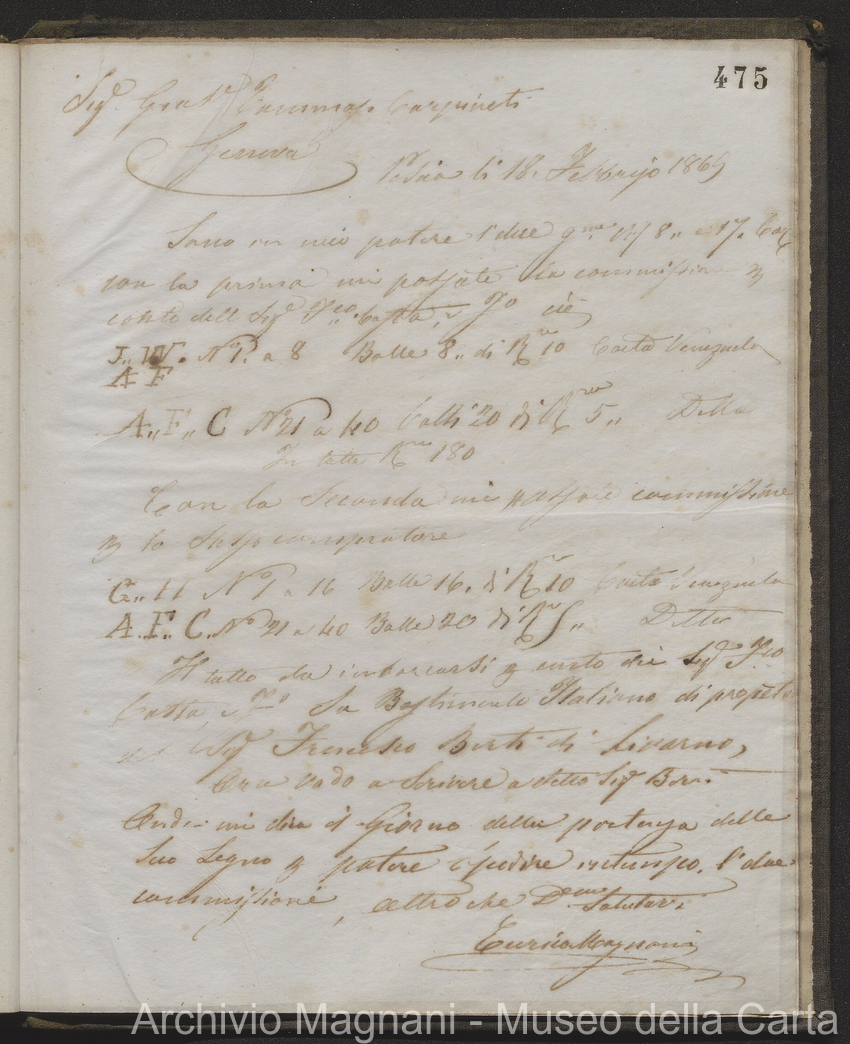 475
Sig.r Grat. Tommaso Carpineti
Genova
Pescia li 18. Febbrajo 1869
Sono in mio potere l'due 8,, e 17.
con la prima mi passate la commissione
conto dell Sig.r Costa, e
J,, W. N° 1. a 8 Balle 8,, di R.me 10 Carta Venezuela
A F
A,, F,, C N° 21 a 40 Colli 20 di R.me 5,, Detta
In tutto R.me 180
Con la Seconda mi passate commissione
lo stesso compratore
G,, H N° 1 a 16 Balle 16. di R.e 10 Carta Venezuela
A. F,, C. N° 21 a 40 Balle 20 di R.e 5,, Detta
Il tutto da imbarcarsi conto dei Sig.i
Costa, e Su Bastimento Italiano di propietà
del Sig.r Francesco Berti di Livorno,
Ora vado a Scrivere a detto Sig.r Berti
Onde mi dia il Giorno della partenza delle
Suo Legno potere spedire in tempo. l'due
commissioni, altro che Salutarvi
Enrico Magnani
Archivio Magnani - Museo della Carta